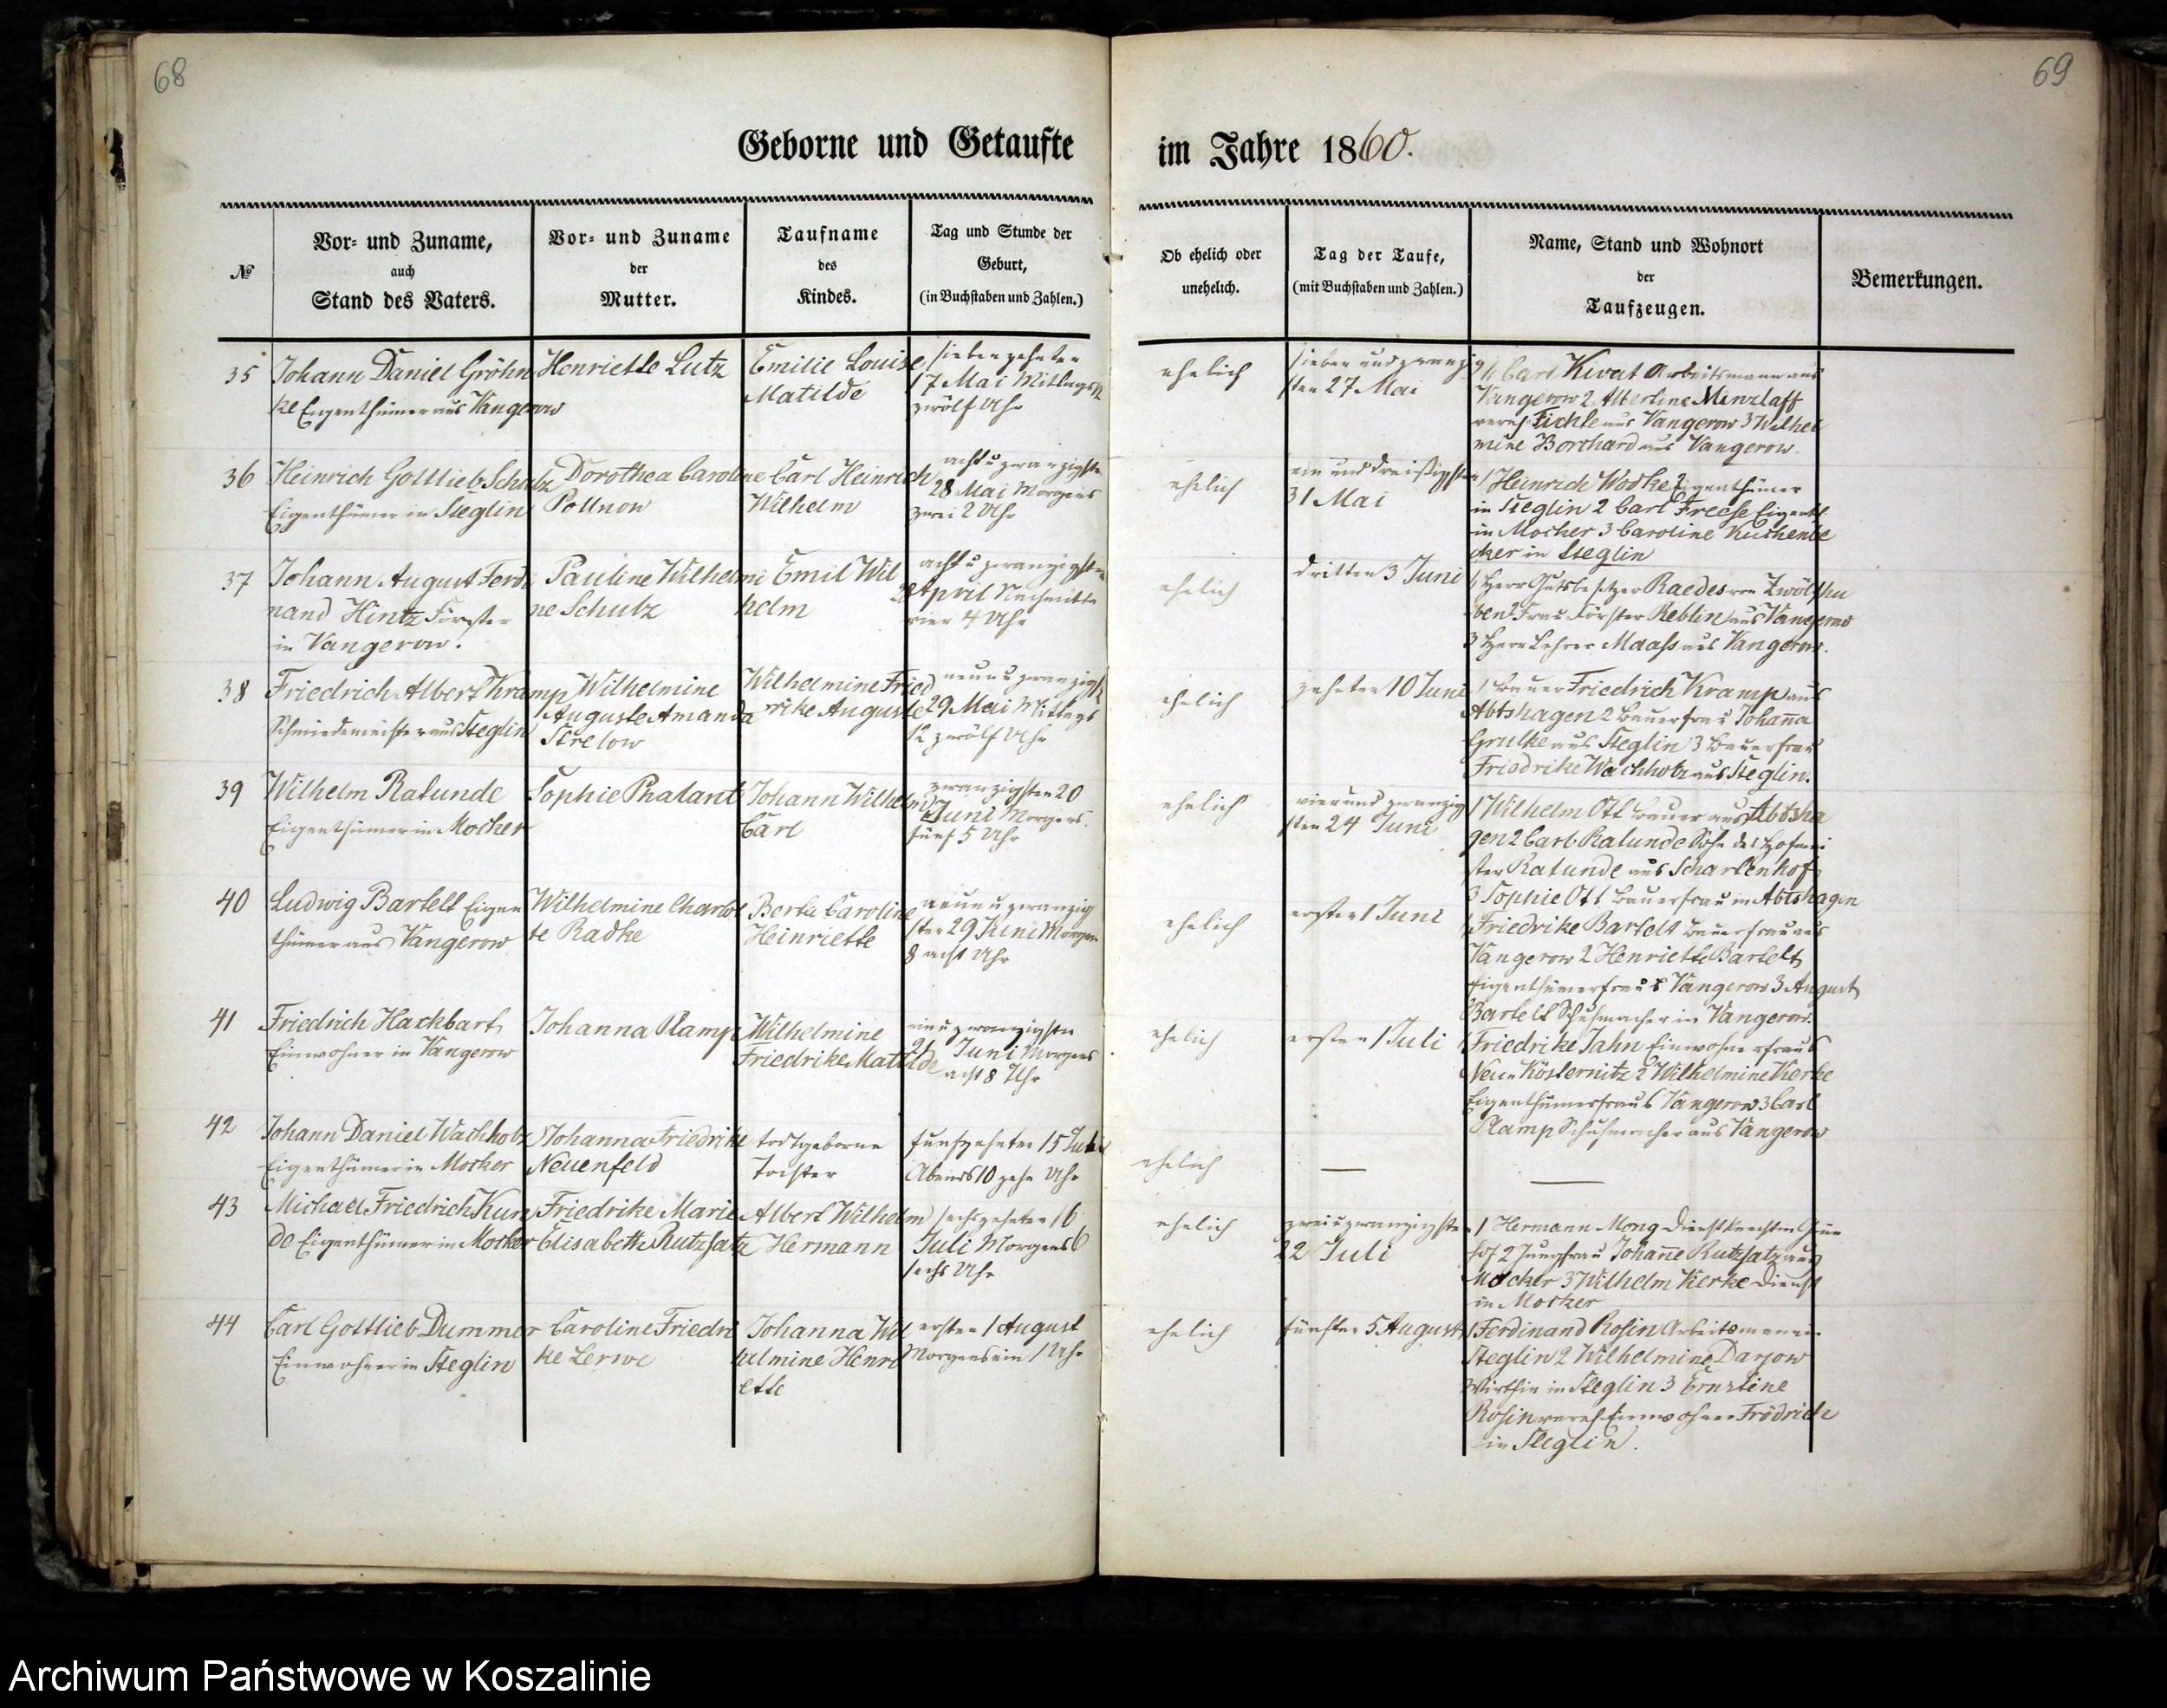 68
69
Geborne und Getaufte im Jahre 1860.
№
Vor- und Zuname,
auch
Stand des Vaters.
Vor- und Zuname
der
Mutter.
Taufname
des
Kindes.
Tag und Stunde der
Geburt,
(in Buchstaben und Zahlen.)
Ob ehelich oder
unehelich.
Tag der Taufe,
(mit Buchstaben und Zahlen.)
Name, Stand und Wohnort
der
Taufzeugen.
Bemerkungen.
35
Johann Daniel Gröhn
ke Eigenthümer aus Vangerow
Henriette Lutz
Emilie Louise
Matilde
siebenzehnten
17 Mai Mittags 12
zwölf Uhr
ehelich
sieben und zwanzig
sten 27 Mai
1 Carl Kwat Arbeitsmann aus
Vangerow 2 Albertine Minzlaff
vereh. Fichte aus Vangerow 3 Wilhel
mine Borchard aus Vangerow.
36
Heinrich Gottlieb Schulz
Eigenthümer in Steglin
Dorothea Caroline
Pollnow
Carl Heinrich
Wilhelm
acht u zwanzigsten
28 Mai Morgens
zwei 2 Uhr
ehelich
ein und dreißigsten
31 Mai
1 Heinrich Wodke Eigenthümer
in Steglin 2 Carl Freese Eigenth.
in Mocker 3 Caroline Kuchenbe
cker in Steglin
37
Johann August Ferdi
nand Hintz Förster
in Vangerow.
Pauline Wilhelmi
ne Schulz
Emil Wil
helm
acht u zwanzigsten
28 April Nachmitta
vier 4 Uhr
ehelich
dritten 3 Juni
1 Herr Gutsbesitzer Raedes von Zwölfhu
ben 2 Frau Förster Reblin aus Vangerow
3 Herr Lehrer Maass aus Vangerow.
38
Friedrich Albert Kramp
Schmiedemeister aus Steglin
Wilhelmine
Auguste Amanda
Strelow
Wilhelmine Fried
rike Auguste
neun u zwanzigst
29 Mai Mittags
12 zwölf Uhr
ehelich
zehnten 10 Juni
1 Bauer Friedrich Kramp aus
Abtshagen 2 Bauerfrau Johanna
Grulke aus Steglin 3 Bauerfrau
Friedrike Wachholz aus Steglin.
39
Wilhelm Ratunde
Eigenthümer in Mocker
Sophie Pralant
Johann Wilhelm
Carl
zwanzigsten 20
Juni Morgens
fünf 5 Uhr
ehelich
vier und zwanzig
sten 24 Juni
1 Wilhelm Ott Bauer aus Abtsha
gen 2 Carl Ratunde Sohn des Hofmei
ster Ratunde aus Scharlenhof
3 Sophie Ott Bauerfrau in Abtshagen
40
Ludwig Bartelt Eigen
thümer aus Vangerow
Wilhelmine Charlot
te Radke
Berta Caroline
Heinriette
neun u zwanzig
sten 29 Juni Morgen
8 acht Uhr
ehelich
ersten 1 Juni
1 Friedrike Bartelt Bauerfrau aus
Vangerow 2 Henriette Bartelt
Eigenthümerfrau s Vangerow 3 August
Bartelt Schuhmacher in Vangerow.
41
Friedrich Hackbart
Einwohner in Vangerow
Johanna Ramp
Wilhelmine
Friedrike Matilde
ein u zwanzigsten
21 Juni Morgens
acht 8 Uhr
ehelich
ersten 1 Juli
1 Friedrike Jahn Einwohnerfrau s
Neu-Kösternitz 2 Wilhelmine Kerke
Eigenthümerfrau s Vangerow 3 Carl
Ramp Schuhmacher aus Vangerow
42
Johann Daniel Wachholz
Eigenthümer in Mocker
Johanna Friedrike
Neuenfeld
todtgeborne
Tochter
funfzehnten 15 Juli
Abends 10 zehn Uhr
ehelich
43
Michael Friedrich Kun
de Eigenthümer in Mocker
Friedrike Marie
Elisabeth Rutzsatz
Albert Wilhelm
Hermann
sechszehnten 16
Juli Morgens 6
sechs Uhr
ehelich
zwei u zwanzigsten
22 Juli
1 Hermann Mong Dienstknecht in Grün
hof 2 Jungfrau Johanne Rutzsatz aus
Mocker 3 Wilhelm Kerke Dienst
in Mocker
44
Carl Gottlieb Dummer
Einwohner in Steglin
Caroline Friedri
ke Lerwe
Johanna Wil
helmine Henri
ette
ersten 1 August
Morgens ein 1 Uhr
ehelich
fünften 5 August
1 Ferdinand Rosin Arbeitsmann in
Steglin 2 Wilhelmine Darjow
Wirthin in Steglin 3 Ernstine
Rosin vereh. Einwohner Frödrich
in Steglin.
Archiwum Państwowe w Koszalinie